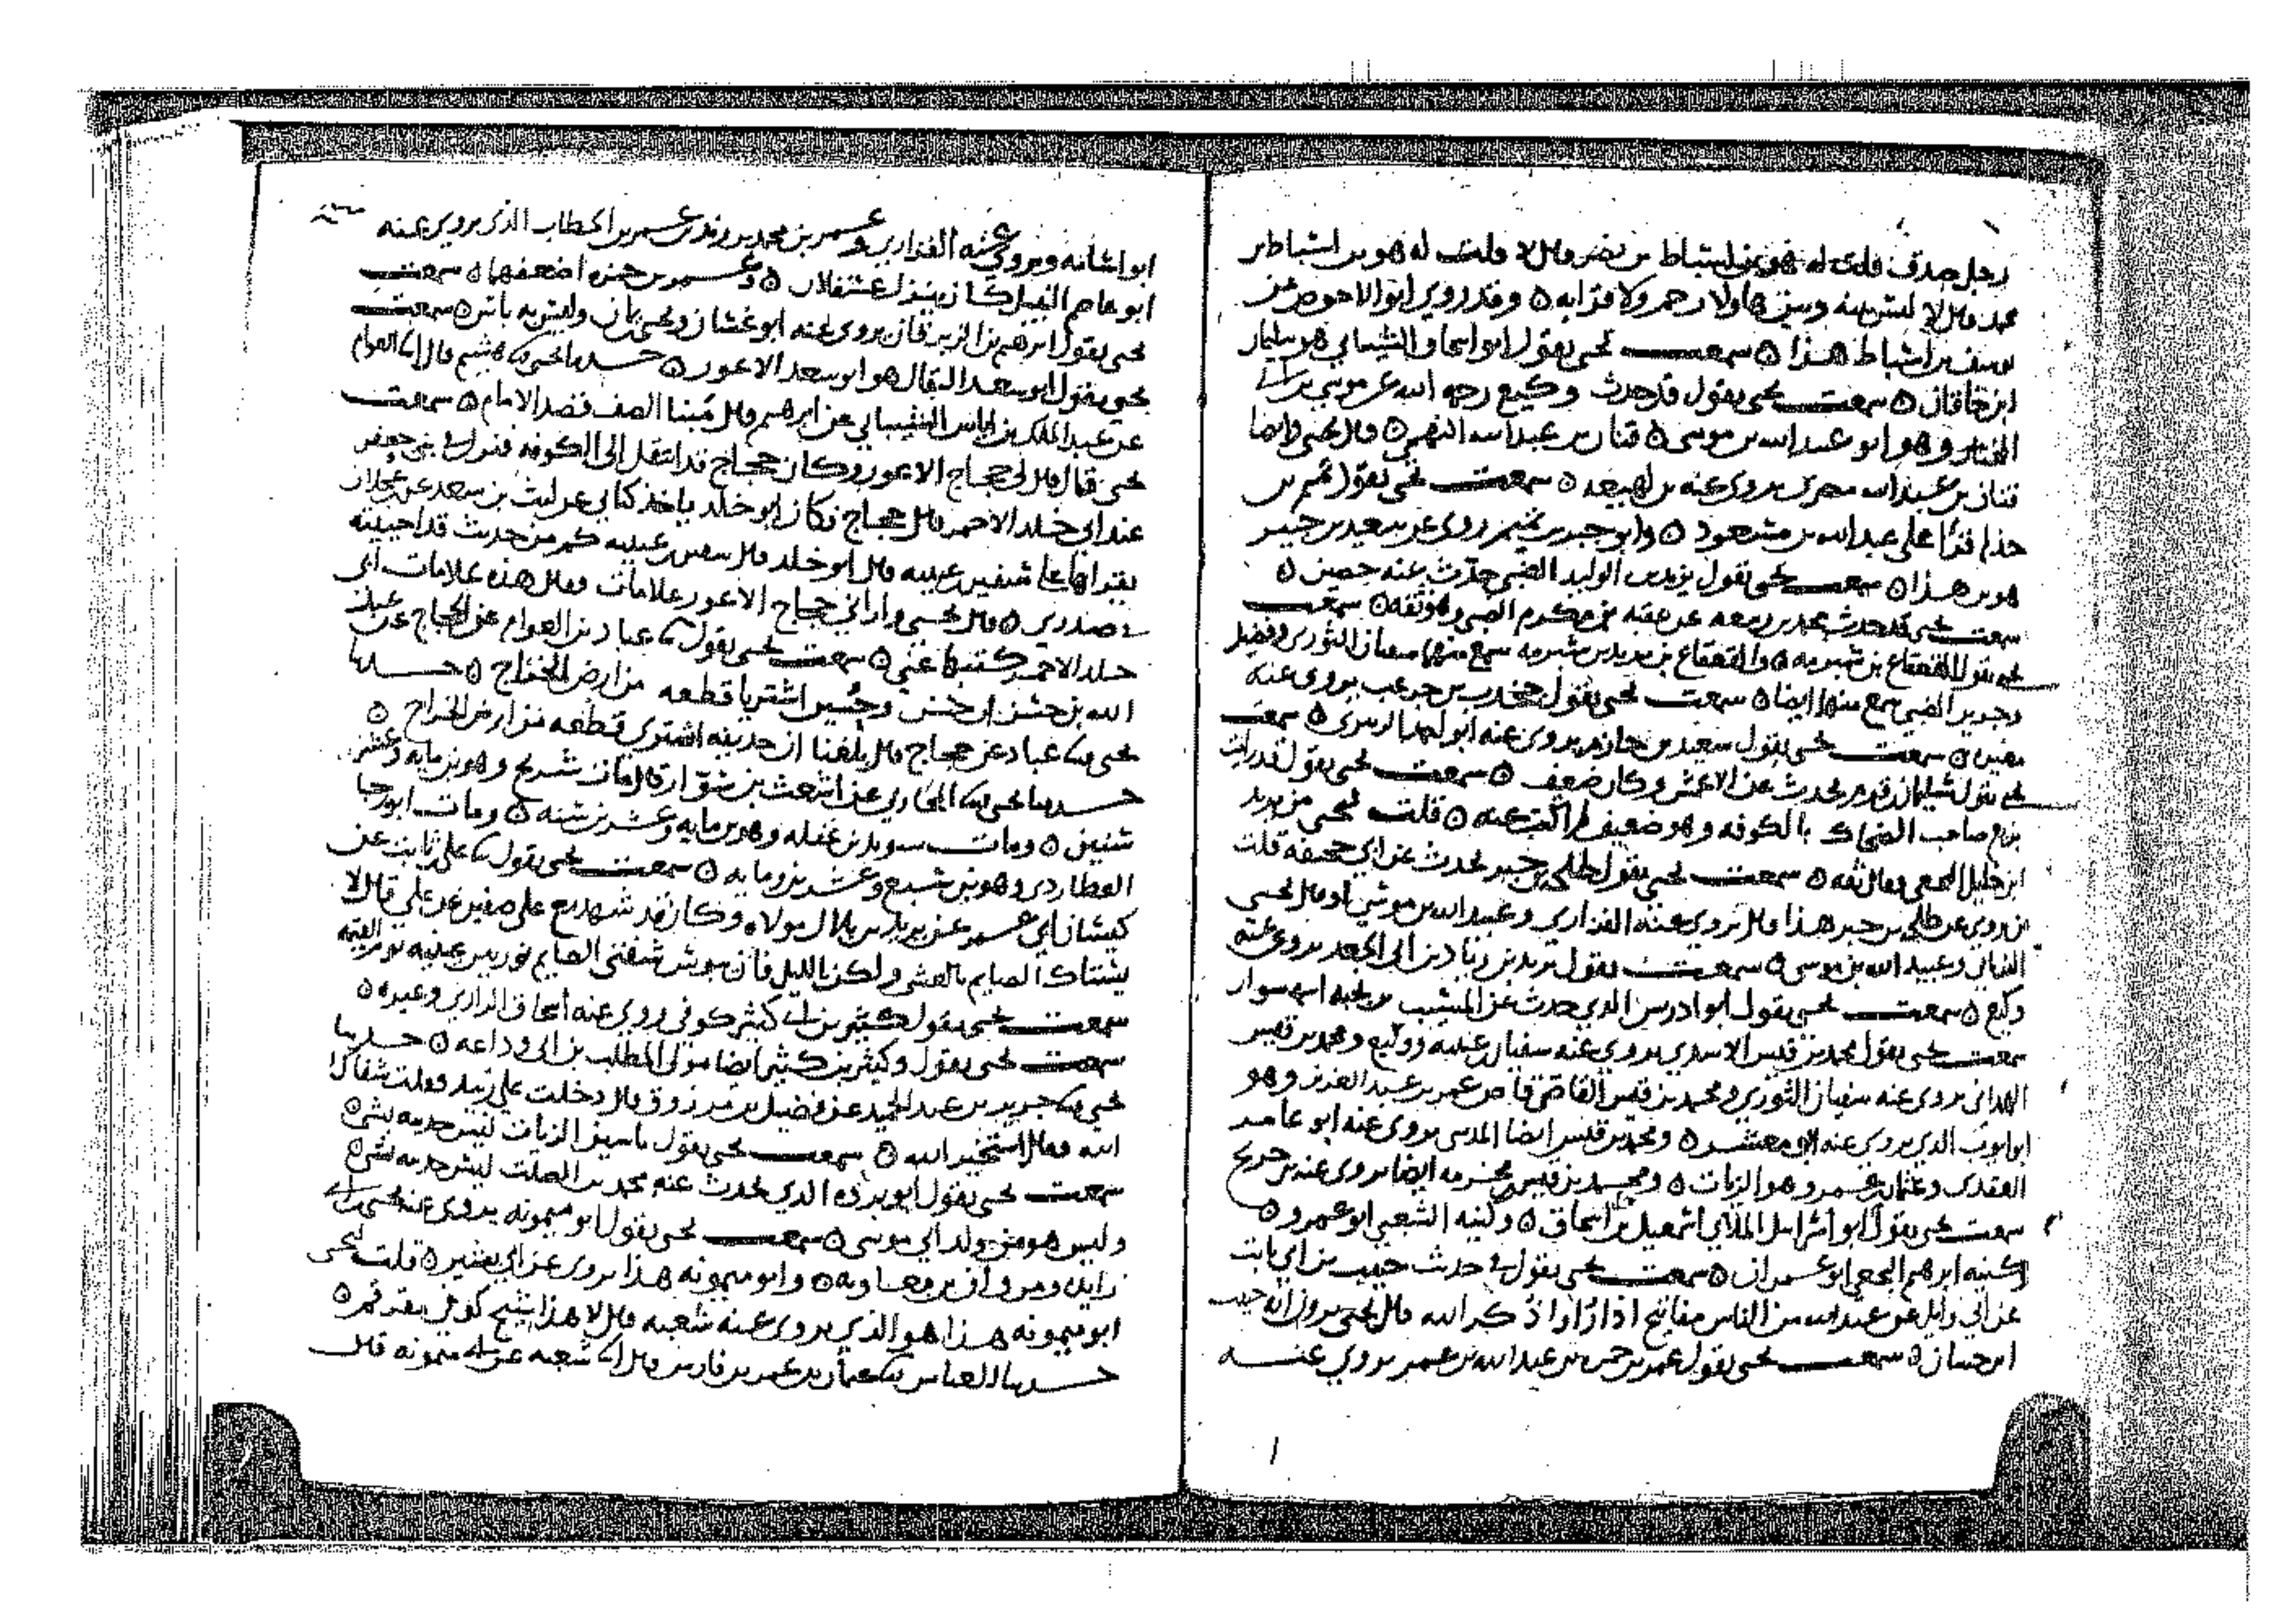 رجل صدق قلت له هو بن اسباط بن نصر قال لا قلت له هو بن اسباط بن
محمد قال لا ليس بينه وبين هاولا رحم ولا قرابه ٥ وقد روى ابو الاحوص عن
يوسف بن اسباط هذا ٥ سمعت يحيى يقول ابو اسحاق الشيباني هو سليمان
ابن خاقان ٥ سمعت يحيى يقول قد حدث وكيع رحمه الله عن موسى بن
المختار وهو ابو عبد الله بن موسى ٥ قنان بن عبد الله النهمي ٥ قال يحيى وايضا
قنان بن عبد الله مصرى يروى عنه بن لهيعه ٥ سمعت يحيى يقول تميم بن
حذلم قرا على عبد الله بن مسعود ٥ وابو جبر بن تميم روى عن سعيد بن جبير
هو بن هذا ٥ سمعت يحيى يقول يزيد بن الوليد الضبي حدث عنه حصين ٥
سمعت يحيى قد حدث محمد بن ربيعه عن عقبه بن مكرم الضبي وهو ثقه ٥ سمعت
يحيى يقول القعقاع بن شبرمه ٥ والقعقاع بن يزيد بن شبرمه سمع منهما سفيان الثوري وفضيل
وجرير الضبي سمع منهما ايضا ٥ سمعت يحيى يقول جخدب بن جرعب يروى عنه
سفيان ٥ سمعت يحيى يقول سعيد بن حازم يروى عنه ابو احمد الزبيرى ٥ سمعت
يحيى يقول سليمان بن قرم يحدث عن الاعمش وكان ضعيف ٥ سمعت يحيى يقول قد رايت
بزيع صاحب الضحاك بالكوفه وهو ضعيف لم اكتب عنه ٥ قلت ليحيى مزيد
ابن خليل النخعي فقال ثقه ٥ سمعت يحيى يقول طلحه بن جبر يحدث عن ابي جحيفه قلت
من روى عن طلحه بن جبر هذا قال يروى عنه الفزاري وعبيد الله بن موسى او قال يحيى
الفزاري وعبيد الله بن موسى ٥ سمعت يقول يزيد بن زياد بن ابي الجعد يروى عنه
وكيع ٥ سمعت يحيى يقول ابو ادريس الذي حدث عن المسيب بن نجبه اسمه سوار
سمعت يحيى يقول محمد بن قيس الاسدي يروي عنه سفيان بن عيينه ووكيع ومحمد بن قيس
الهمداني يروى عنه سفيان الثوري ومحمد بن قيس القاضي قاص عمر بن عبد العزيز وهو
الذي يروى عنه ابو معشر ٥ ومحمد بن قيس ايضا المدني يروى عنه ابو عامر
العقدى وعثمان بن عمر وهو الزيات ٥ ومحمد بن قيس بن مخرمه ايضا يروى عنه بن جريج
سمعت يحيى يقول ابو اسرائيل الملائي اسمعيل بن اسحاق ٥ وكنيه الشعبي ابو عمرو ٥
وكنيه ابرهيم النخعي ابو عمران ٥ سمعت يحيى يقول في حدث حبيب بن ابي ثابت
عن ابي وايل عن عبد الله من الناس مفاتيح اذا راوا ذكر الله قال يحيى يرون انه حبيب
ابن حسان ٥ سمعت يحيى يقول عمر بن حمزه بن عبد الله بن عمر يروي عنه
ابو اسامه ويروى عنه الفزاري وعمر بن محمد بن زيد بن عمر بن الخطاب الذي يروى عنه
ابو عاصم النبيل كان ينزل عسقلان ٥ وعمر بن حمزه اضعفهما ٥ سمعت
يحيى يقول ابرهيم بن الزبرقان يروى عنه ابو غسان ويحيى بن يمان وليس به باس ٥ سمعت
يحيى يقول ابو سعد البقال هو ابو سعد الاعور ٥ حدثنا يحيى نا هشيم قال انا العوام
عن عبد الملك بن اياس الشيباني عن ابرهيم قال ميمنا الصف قصد الامام ٥ سمعت
يحيى قال قال لي حجاج الاعور وكان حجاج قد انتقل الى الكوفه فنزل في بني جعفر
عند ابي خلد الاحمر قال حجاج فكان ابو خلد ياخذ كتابي عن ليث بن سعد عن بن عجلان
يقراها على سفين بن عيينه قال ابو خلد قال سفين بن عيينه كم من حديث قد احييته
في صدري ٥ قال يحيى واراني حجاج الاعور علامات وقال هذه علامات ابي
خلد الاحمر كتبها عني ٥ سمعت يحيى يقول نا عباد بن العوام عن الحجاج عن عبد
الله بن حسن ان حسن وحسين اشتريا قطعه من ارض الخراج ٥ حدثنا
يحيى نا عباد عن حجاج قال بلغنا ان حذيفه اشترى قطعه من ارض الخراج ٥
حدثنا يحيى نا المحاربي عن اشعث بن سوار قال مات شريح وهو بن مايه وعشر
سنين ٥ ومات سويد بن غفله وهو بن مايه وعشرين سنه ٥ ومات ابو رجا
العطاردي وهو بن سبع وعشرين ومايه ٥ سمعت يحيى يقول نا علي بن ثابت عن
كيسان ابي عمر عن يزيد بن بلال مولاه وكان قد شهد مع علي صفين عن علي قال لا
يستاك الصايم بالعشي ولكن بالليل فان يبوس شفتي الصايم نور بين عينيه يوم القيمه
سمعت يحيى يقول كثير بن كثير كوفي روى عنه اسحاق الرازي وغيره ٥
سمعت يحيى يقول وكثير بن كثير ايضا مولى المطلب بن ابي وداعه ٥ حدثنا
يحيى نا جرير بن عبد الحميد عن فضيل بن مرزوق قال دخلت على زبيد فقلت شفاك
الله فقال استخير الله ٥ سمعت يحيى يقول ياسين الزيات ليس حديثه بشي ٥
سمعت يحيى يقول ابو برده الذي يحدث عنه محمد بن الصلت ليس حديثه بشي ٥
وليس هو من ولد ابي موسى ٥ سمعت يحيى يقول ابو ميمونه يروى عنه يحيى بن
زايده ومروان بن معاويه ٥ وابو ميمونه هذا يروى عن ابي بشير ٥ قلت ليحيى
ابو ميمونه هذا هو الذي يروى عنه شعبه قال لا هذا شيخ كوفي
حدثنا العباس نا عثمان بن عمر بن فارس قال انا شعبه عن ابي ميمونه قال